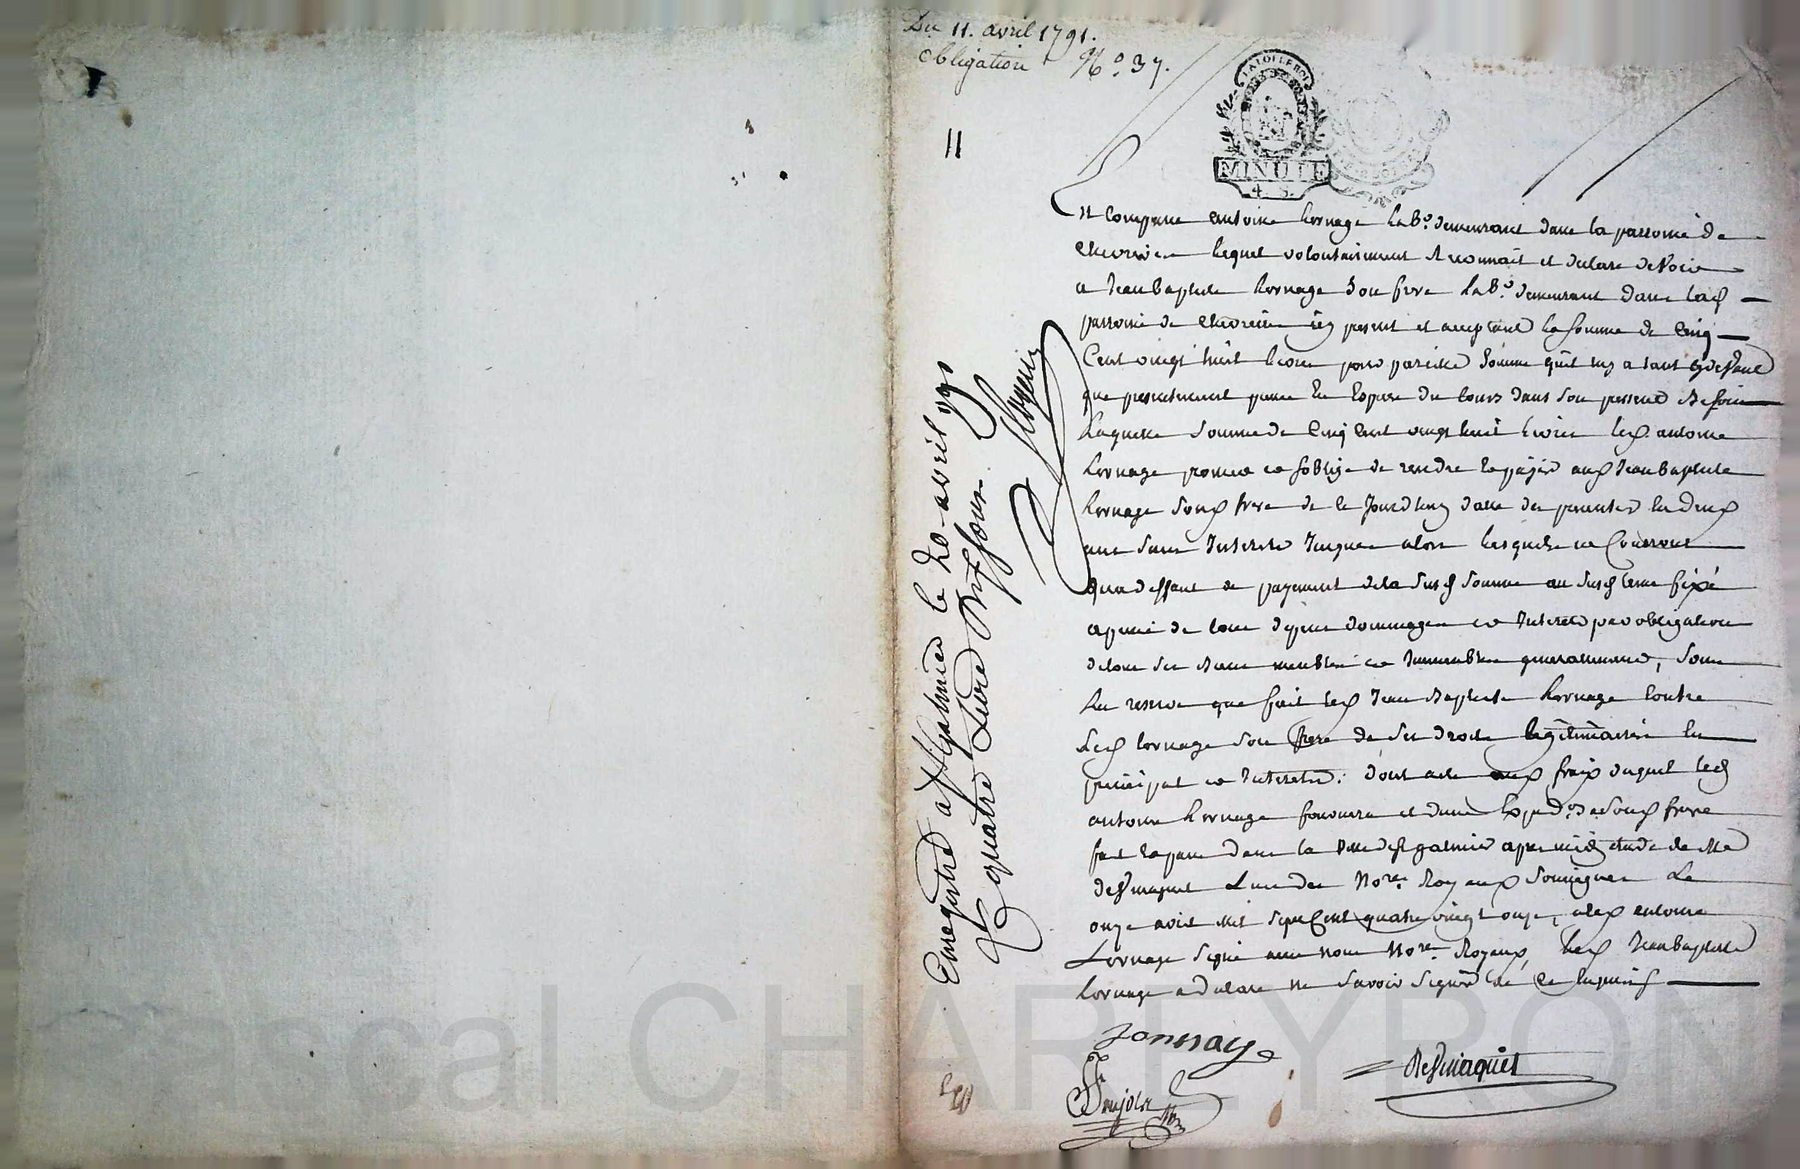 Du 11. avril 1791.
obligation N.o 37.
11
LA LOI LE ROI
MINUTE
4. S.
Est Comparu antoine Lornage Lab.r demeurant dans la parroisse de
Chevrieres lequel volontairement Reconnait et declare devoir
a Jean Baptiste Lornage Son frere Lab.r demeurant dans lad
parroisse de Chevrieres icy present et acceptant la somme de Cinq
Cent vingt huit livres pour pareille Somme quil luy a tant cydevant
que presentement en Especes du Cours dans Son present Besoin
Laquelle Somme de Cinq Cent vingt huit livres led. antoine
Lornage promet et Soblige de rendre et payer aud Jean Baptiste
Lornage Sond frere de ce Jourdhuy date des presentes En deux
ans Sans Interets Jusques alors Lesquels ne Courront
qua deffaut de payement de la Susd Somme au Susd terme fixé
a peine de tous depens dommages et Interets par obligation
de tous Ses Biens meubles et Immeubles Sous
La reserve que fait led Jean Baptiste Lornage Contre
Led Lornage Son frere de Ses droits legitimaires En
principal et Interets. Dont acte aux fraix duquel led
antoine Lornage fournira Exped.on a Sond frere
fait et passé dans la ville de St galmier apres midy etude de Me
Desvinques L'un des No.res Royaux Soussignés Le
onze avril mil Sept Cent quatre vingt onze, a led antoine
Lornage Signé avec nous No.res Royaux, led Jean Baptiste
Lornage a declaré ne Savoir Signer de Ce Enquis
Lornage
Desvinques
Enregistré a St Galmier le 20 avril 1791
Rf quatre Livres dix Sous
220
Pascal CHARLYRON